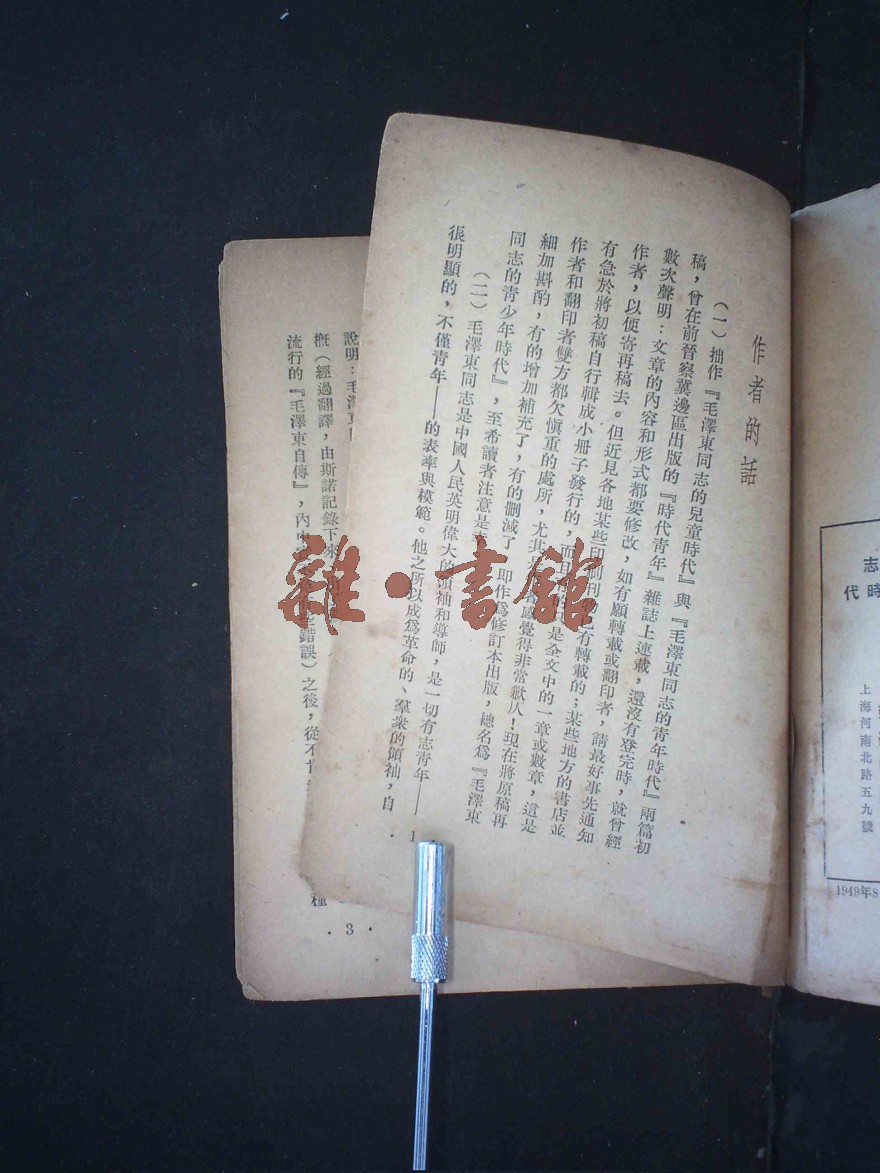 志
時代
上海河南北路五九號
1949年8
作者的話
(一)拙作『毛澤東同志的兒童時代』與『毛澤東同志的青年時代』兩篇初
稿,曾在前晉察冀邊區出版的『時代青年』雜誌上連載,還沒有登完時,就曾經
數次聲明:文章的內容和形式都要修改,如有願轉載或翻印者,請最好事先通知
作者,以便寄再稿去。但近見各地某些印制刊物已有轉載的;某些地方的書店並
有急於將初稿自行輯成小冊子發行的,而且只是全文中的一章或數章,這是
作者和翻印者雙方都欠愼重的處所,尤其感覺得非常歉仄!現在將原稿再
細加斟酌,有的增加補充了,有的刪減了,即作爲修訂本出版,總名爲『毛澤東
同志的青少年時代』,至希讀者注意是
(二)毛澤東同志是中國人民英明偉大的領袖和導師,是一切有志青年——
很明顯的,不僅青年——的表率與模範。他之所以成爲革命的、羣衆的領袖,自
· 1
說明:毛澤東
概(經過翻譯,由斯諾記錄下來,
種
流行的『毛澤東自傳』,內中錯誤)之後,從不
· 3 ·
雜·書館